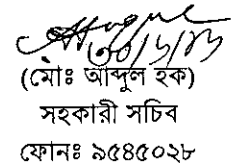 ৩০/৬/১৩
(মোঃ আব্দুল হক)
সহকারী সচিব
ফোনঃ ৯৫৪৫০২৮